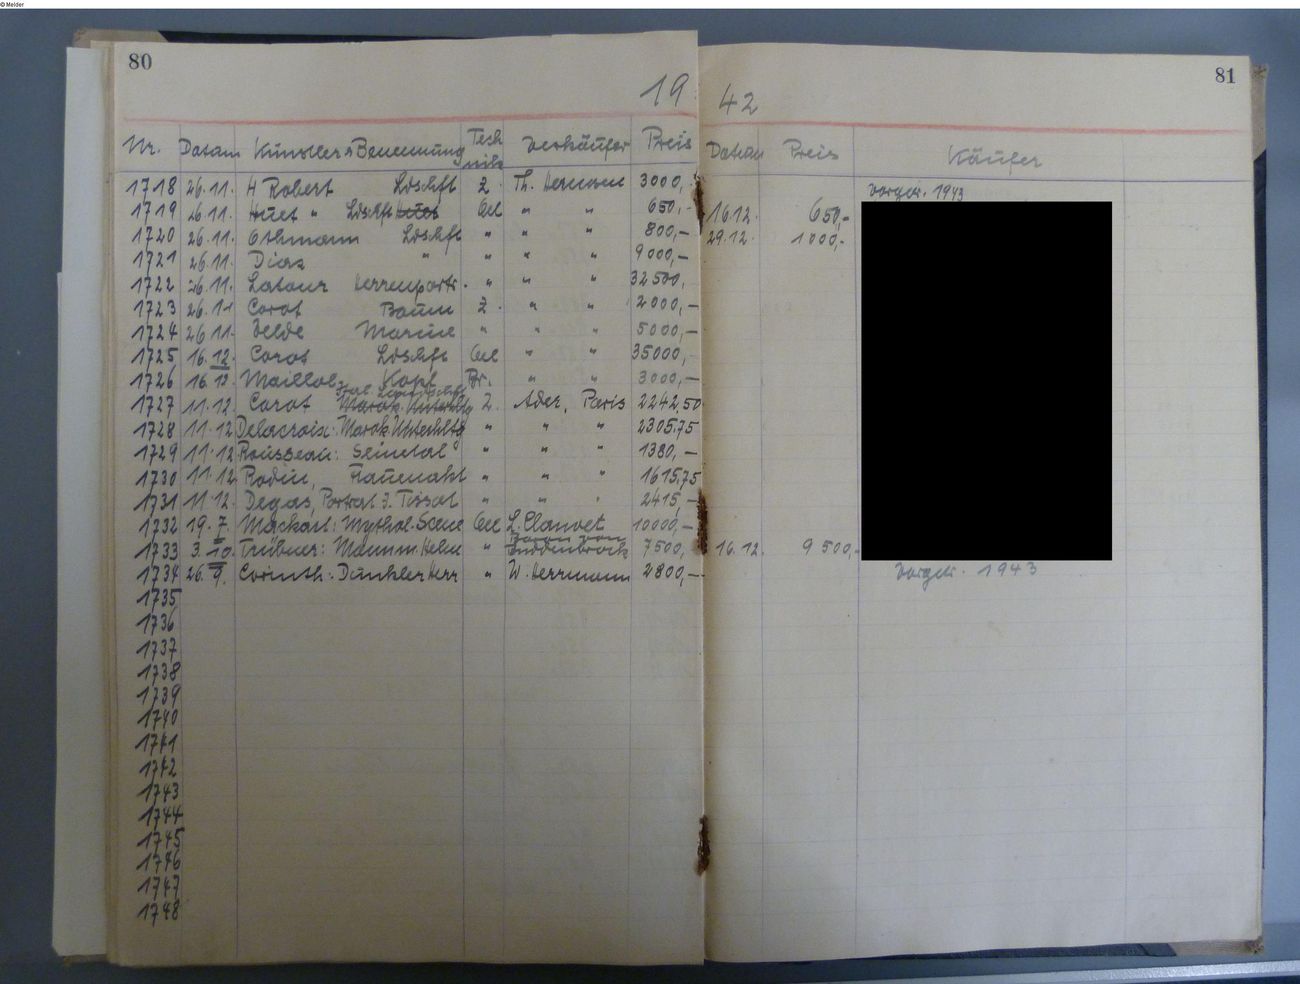 © Melder
80
81
19 42
Nr. Datum Künstler & Benennung Technik Verkäufer Preis Datum Preis Käufer
1718 26.11. H Robert Ldschft Z. Th. Hermsen 3000,- vorgetr. 1943
1719 26.11. Huet " Ldschft Oel " " 650,- 16.12. 650,-
1720 26.11. Othmann Ldschft " " " 800,- 29.12. 1000,-
1721 26.11. Diaz " " " " 9000,-
1722 26.11. Latour Herrenportr. " " " 32500,
1723 26.11 Corot Baum Z. " " 2000,-
1724 26 11. Velde Marine " " " 5000,-
1725 16.12. Corot Ldschft Oel " " 35000,-
1726 16.12 Maillol Kopf Br. " " 3000,-
1727 11.12. Corot Z. Ader, Paris 2242,50
1728 11.12 Delacroix: Marok. Unterhltg " " " 2305,75
1729 11.12 Rousseau: Seinetal " " " 1380,-
1730 11.12. Rodin, Frauenakt " " " 1615,75
1731 11.12. Degas, Portrat J. Tissot " " " 2415,-
1732 19.7. Makart: Mythol. Scene Oel L. Clauvet 10000,-
1733 3.10. Trübner: Mann m. Helm " Baron von Buddenbrock 7500, 16.12. 9500,-
1734 26.9. Corinth: Dunkler Herr " W. Herrmann 2800,- vorgetr. 1943
1735
1736
1737
1738
1739
1740
1741
1742
1743
1744
1745
1746
1747
1748